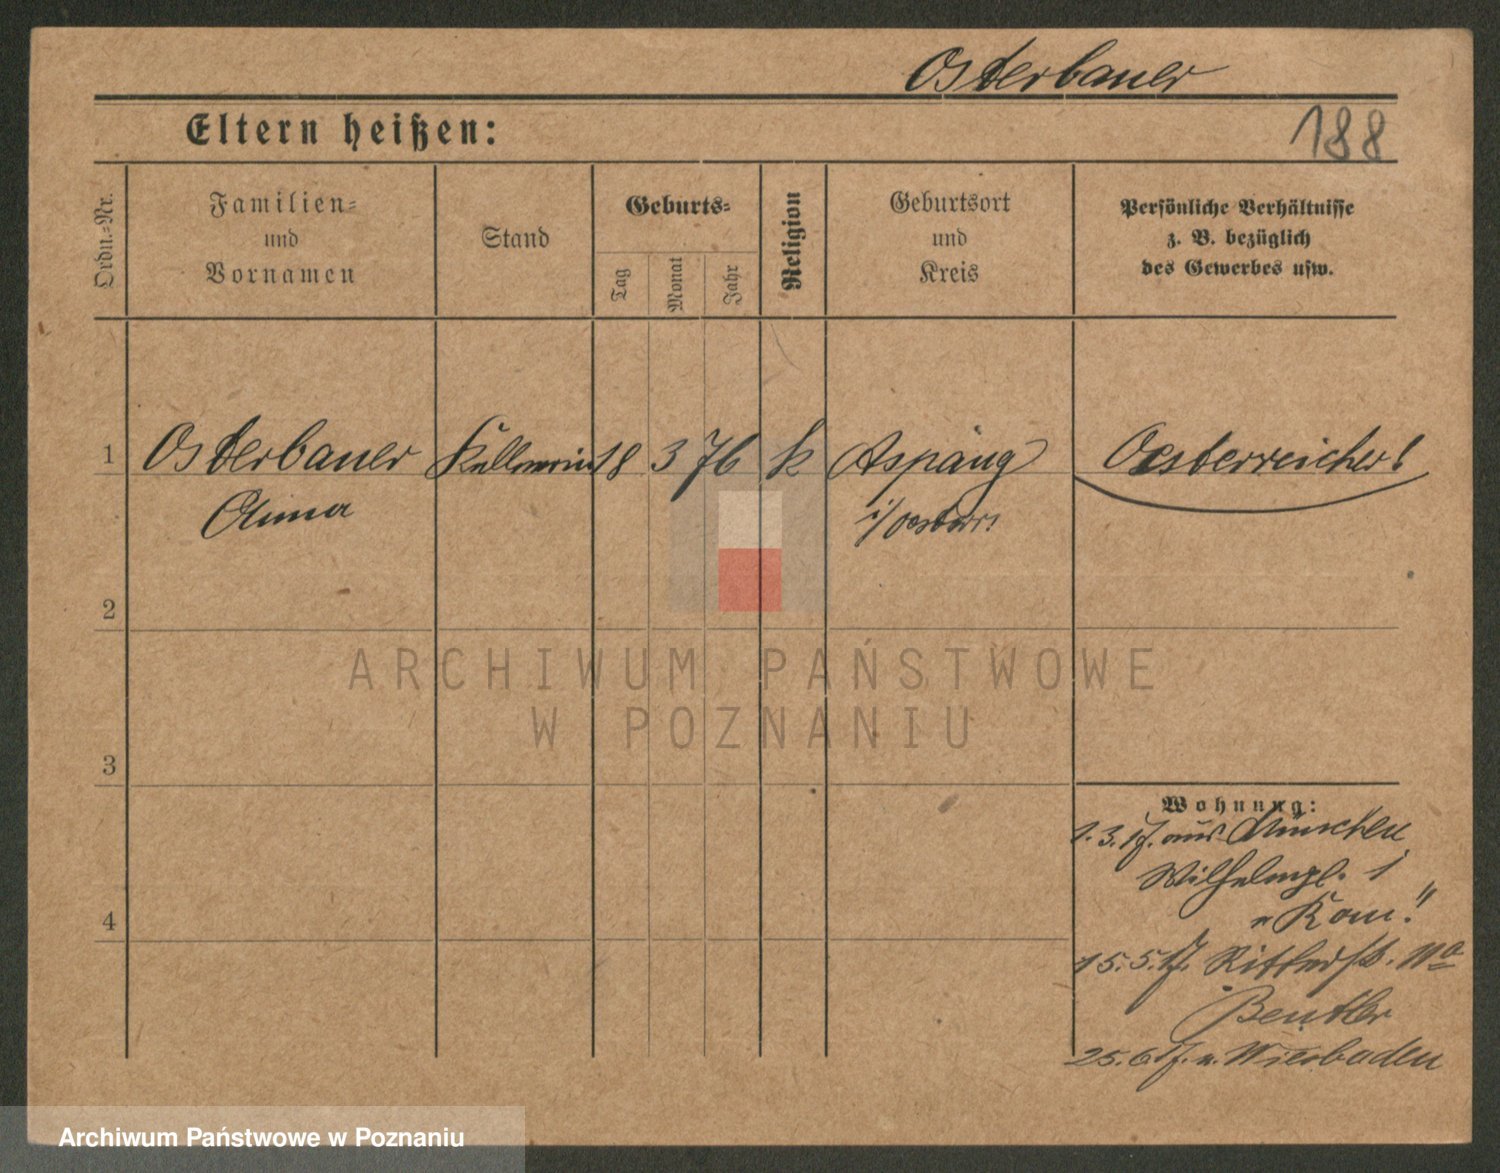 Osterbauer
188
Eltern heißen:
Ordn.-Nr.
Familien-
und
Vornamen
Stand
Geburts-
Tag
Monat
Jahr
Religion
Geburtsort
und
Kreis
Persönliche Verhältnisse
z. B. bezüglich
des Gewerbes usw.
1 Osterbauer Kellnerin 18 3 76 k Aspang Oesterreicher!
Anna
i/Oesterr.
2
ARCHIWUM PAŃSTWOWE
W POZNANIU
3
Wohnung:
1.3.17. aus München
Wilhelmpl. 1
4
15.5.17. Ritterstr. 11a
Beutler
25.6.17. n. Wiesbaden
Archiwum Państwowe w Poznaniu